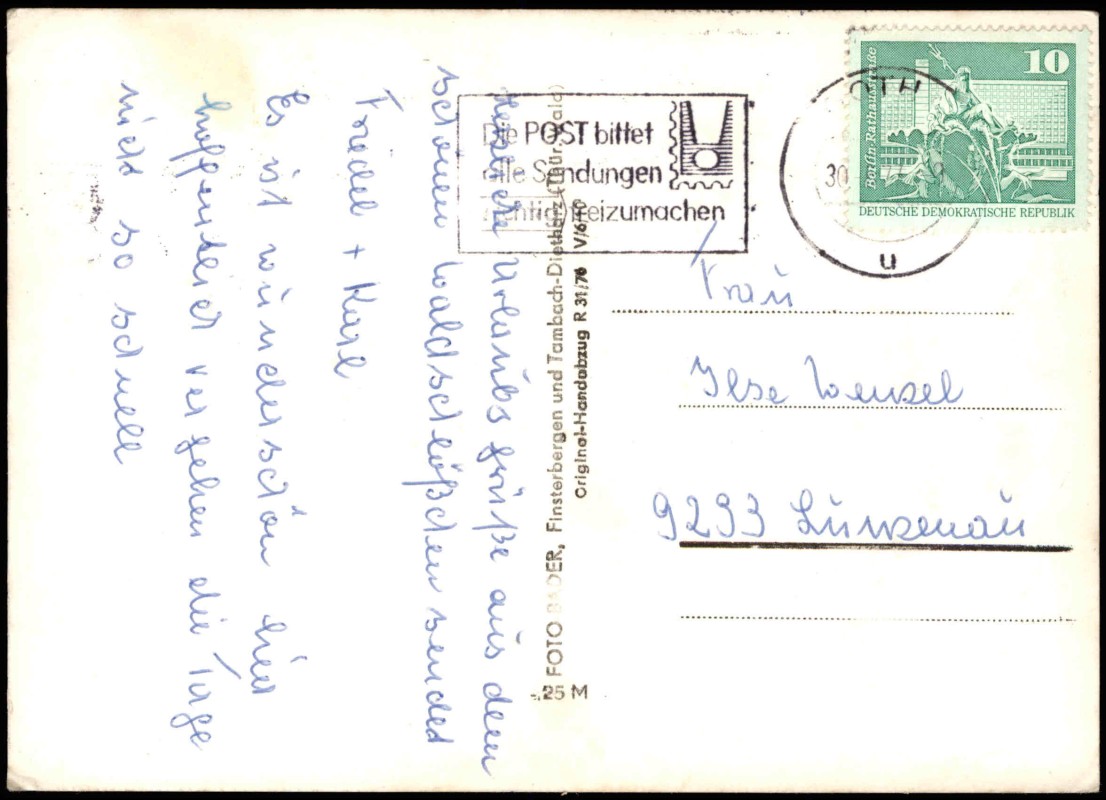 Herzliche Urlaubsgrüße aus dem
schönen Waldschlößchen sended
Friedel + Karl
Es ist wunderschön hier
hoffentlich vergehen die Tage
nicht so schnell
FOTO BADER, Finsterbergen und Tambach-Dietharz (Thür. Wald)
Original-Handabzug R 31/76 V/6/10
-.25 M
Die POST bittet
alle Sendungen
richtig freizumachen
30
u
10
Berlin-Rathausstraße
DEUTSCHE DEMOKRATISCHE REPUBLIK
Frau
Ilse Wenzel
9293 Lunzenau